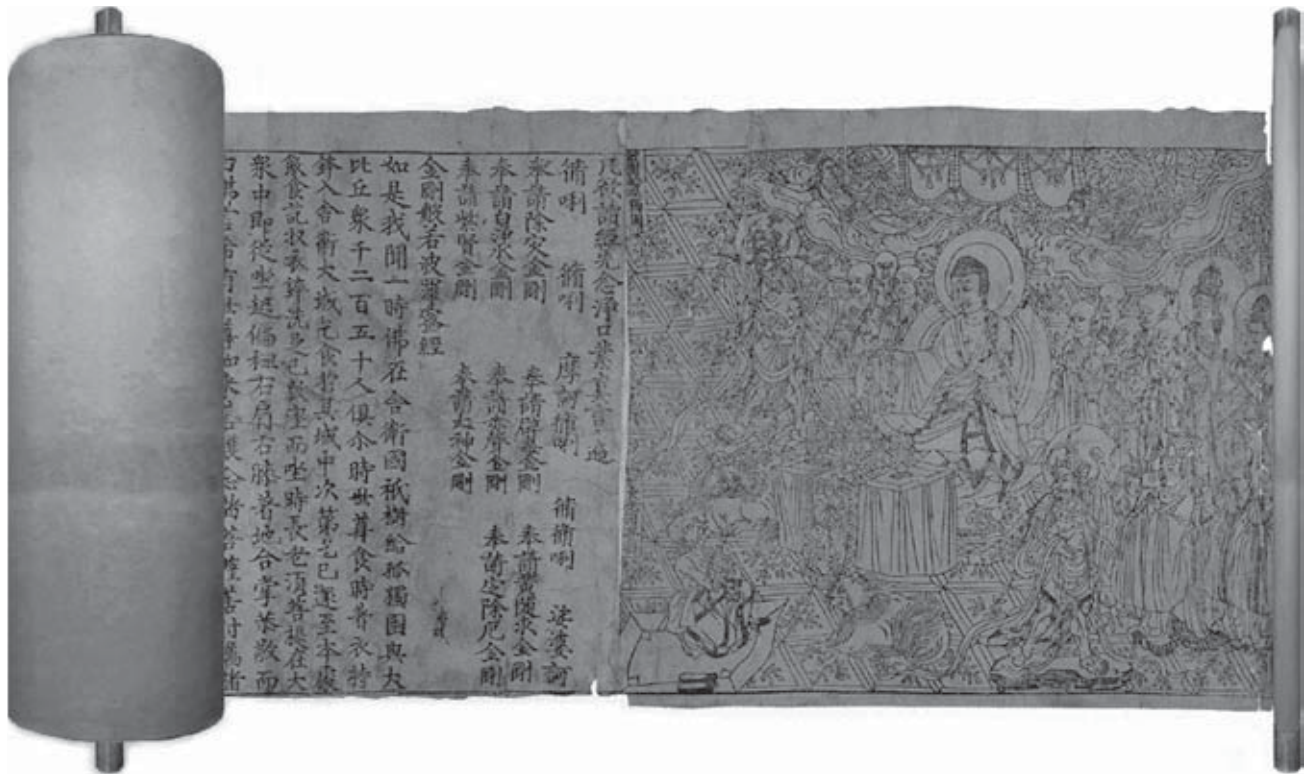 凡欲讀經先念淨口業真言一遍
脩唎 脩唎 摩訶脩唎 脩脩唎 娑婆訶
奉請除灾金剛 奉請辟毒金剛 奉請黃隨求金剛
奉請白淨水金剛 奉請赤聲金剛 奉請定除厄金剛
奉請紫賢金剛 奉請大神金剛
金剛般若波羅蜜經
如是我聞一時佛在舍衛國祇樹給孤獨園與大
比丘衆千二百五十人俱尒時世尊食時著衣持
鉢入舍衛大城乞食於其城中次第乞已還至本處
飯食訖收衣鉢洗足已敷座而坐時長老須菩提在大
衆中即從坐起偏袒右肩右膝著地合掌恭敬而
白佛言希有世尊如来善護念諸菩薩善付囑諸